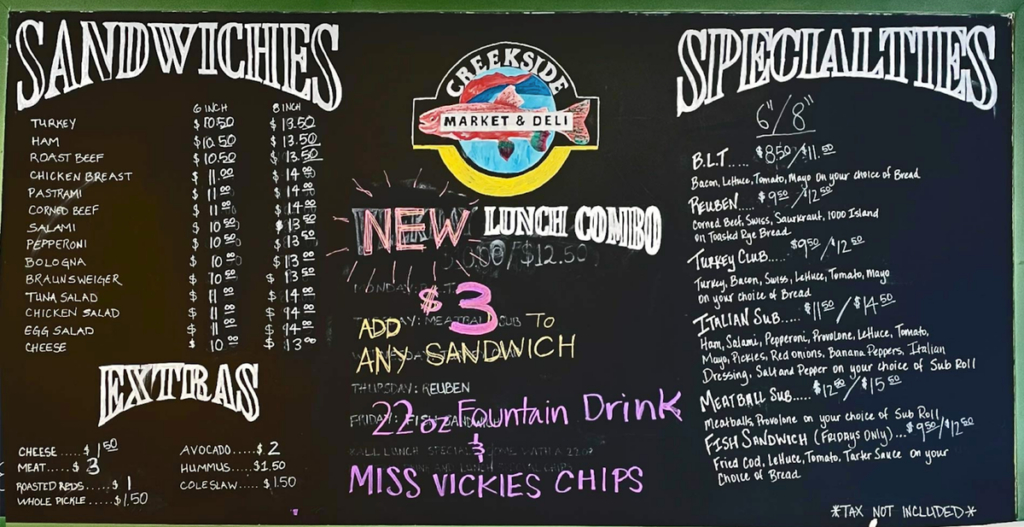 SANDWICHES
6 INCH 8 INCH
TURKEY $10.50 $13.50
HAM $10.50 $13.50
ROAST BEEF $10.50 $13.50
CHICKEN BREAST $11.00 $14.00
PASTRAMI $11.00 $14.00
CORNED BEEF $11.00 $14.00
SALAMI $10.50 $13.50
PEPPERONI $10.50 $13.50
BOLOGNA $10.00 $13.00
BRAUNSWEIGER $10.50 $13.50
TUNA SALAD $11.00 $14.00
CHICKEN SALAD $11.00 $14.00
EGG SALAD $11.00 $14.00
CHEESE $10.00 $13.00
EXTRAS
CHEESE.....$1.50
MEAT.....$3
ROASTED REDS.$1
WHOLE PICKLE.....$1.50
AVOCADO.....$2
HUMMUS.....$1.50
COLESLAW....$1.50
CREEKSIDE
MARKET & DELI
NEW LUNCH COMBO
/$12.50
$3
ADD TO
ANY SANDWICH
THURSDAY: REUBEN
22oz Fountain Drink
&
MISS VICKIES CHIPS
SPECIALTIES
6"/8"
B.L.T..... $8.50/$11.50
Bacon, Lettuce, Tomato, Mayo on your choice of Bread
REUBEN.... $9.50/$12.50
Corned Beef, Swiss, Saurkraut, 1000 Island
on Toasted Rye Bread
TURKEY CLUB.... $9.50/$12.50
Turkey, Bacon, Swiss, Lettuce, Tomato, Mayo
on your choice of Bread
ITALIAN SUB.... $11.50/$14.50
Ham, Salami, Pepperoni, Provolone, Lettuce, Tomato,
Mayo, Pickles, Red onions, Banana Peppers, Italian
Dressing, Salt and Pepper on your choice of Sub Roll
MEATBALL SUB..... /$15.50
Meatballs, Provolone on your choice of Sub Roll
FISH SANDWICH (FRIDAYS ONLY)...$9.50/$12.50
Fried Cod, Lettuce, Tomato, Tarter Sauce on your
Choice of Bread
*TAX NOT INCLUDED*